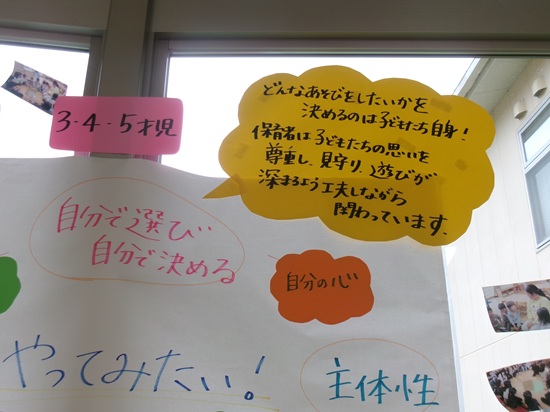 3・4・5才児
どんなあそびをしたいかを
決めるのは子どもたち自身!
保育者は子どもたちの思いを
尊重し、見守り、遊びが
深まるよう工夫しながら
関わっています.
自分で選び
自分で決める
自分の心
やってみたい!
主体性